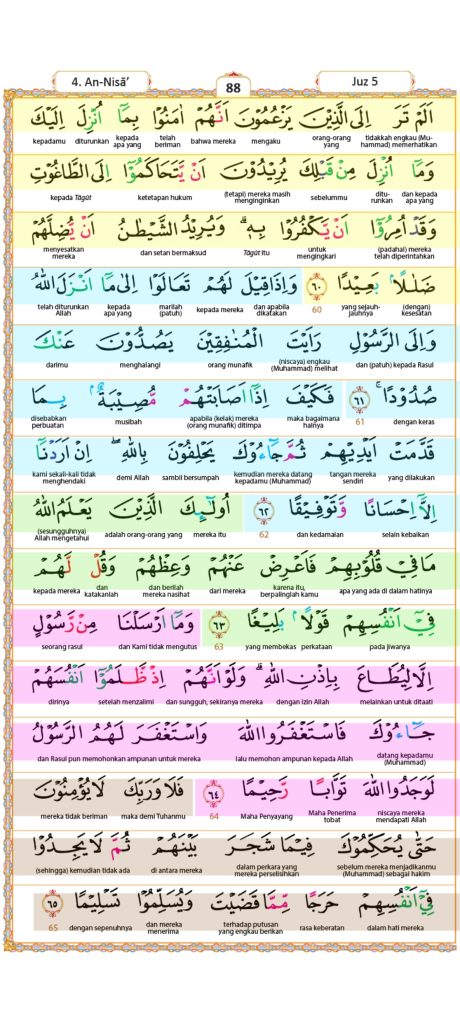 4. An-Nisā’ 88 Juz 5
اَلَمْ تَرَ اِلَى الَّذِيْنَ يَزْعُمُوْنَ اَنَّهُمْ اٰمَنُوْا بِمَآ اُنْزِلَ اِلَيْكَ
tidakkah engkau (Muhammad) memerhatikan orang-orang yang mengaku bahwa mereka telah beriman kepada apa yang diturunkan kepadamu
وَمَآ اُنْزِلَ مِنْ قَبْلِكَ يُرِيْدُوْنَ اَنْ يَّتَحَاكَمُوْٓا اِلَى الطَّاغُوْتِ
dan kepada apa yang diturunkan sebelummu (tetapi) mereka masih menginginkan ketetapan hukum kepada Tāgūt
وَقَدْ اُمِرُوْٓا اَنْ يَّكْفُرُوْا بِهٖۗ وَيُرِيْدُ الشَّيْطٰنُ اَنْ يُّضِلَّهُمْ
(padahal) mereka telah diperintahkan untuk mengingkari Tāgūt itu dan setan bermaksud menyesatkan mereka
ضَلٰلًاۢ بَعِيْدًا ٦٠ وَاِذَا قِيْلَ لَهُمْ تَعَالَوْا اِلٰى مَآ اَنْزَلَ اللّٰهُ
(dengan) kesesatan yang sejauh-jauhnya 60 dan apabila dikatakan kepada mereka marilah (patuh) kepada apa yang telah diturunkan Allah
وَاِلَى الرَّسُوْلِ رَاَيْتَ الْمُنٰفِقِيْنَ يَصُدُّوْنَ عَنْكَ
dan (patuh) kepada Rasul (niscaya) engkau (Muhammad) melihat orang munafik menghalangi darimu
صُدُوْدًاۚ ٦١ فَكَيْفَ اِذَآ اَصَابَتْهُمْ مُّصِيْبَةٌ ۢبِمَا
dengan keras 61 maka bagaimana halnya apabila (kelak) mereka (orang munafik) ditimpa musibah disebabkan perbuatan
قَدَّمَتْ اَيْدِيْهِمْ ثُمَّ جَاۤءُوْكَ يَحْلِفُوْنَ بِاللّٰهِ ۖاِنْ اَرَدْنَآ
yang dilakukan tangan mereka sendiri kemudian mereka datang kepadamu (Muhammad) sambil bersumpah demi Allah kami sekali-kali tidak menghendaki
اِلَّآ اِحْسَانًا وَّتَوْفِيْقًا ٦٢ اُولٰۤىِٕكَ الَّذِيْنَ يَعْلَمُ اللّٰهُ
selain kebaikan dan kedamaian 62 mereka itu adalah orang-orang yang (sesungguhnya) Allah mengetahui
مَا فِيْ قُلُوْبِهِمْ فَاَعْرِضْ عَنْهُمْ وَعِظْهُمْ وَقُلْ لَّهُمْ
apa yang ada di dalam hatinya karena itu, berpalinglah kamu dari mereka dan berilah mereka nasihat dan katakanlah kepada mereka
فِيْٓ اَنْفُسِهِمْ قَوْلًاۢ بَلِيْغًا ٦٣ وَمَآ اَرْسَلْنَا مِنْ رَّسُوْلٍ
pada jiwanya perkataan yang membekas 63 dan Kami tidak mengutus seorang rasul
اِلَّا لِيُطَاعَ بِاِذْنِ اللّٰهِ ۗوَلَوْ اَنَّهُمْ اِذْ ظَّلَمُوْٓا اَنْفُسَهُمْ
melainkan untuk ditaati dengan izin Allah dan sungguh, sekiranya mereka setelah menzalimi dirinya
جَاۤءُوْكَ فَاسْتَغْفَرُوا اللّٰهَ وَاسْتَغْفَرَ لَهُمُ الرَّسُوْلُ
datang kepadamu (Muhammad) lalu memohon ampunan kepada Allah dan Rasul pun memohonkan ampunan untuk mereka
لَوَجَدُوا اللّٰهَ تَوَّابًا رَّحِيْمًا ٦٤ فَلَا وَرَبِّكَ لَا يُؤْمِنُوْنَ
niscaya mereka mendapati Allah Maha Penerima tobat Maha Penyayang 64 maka demi Tuhanmu mereka tidak beriman
حَتّٰى يُحَكِّمُوْكَ فِيْمَا شَجَرَ بَيْنَهُمْ ثُمَّ لَا يَجِدُوْا
sebelum mereka menjadikanmu (Muhammad) sebagai hakim dalam perkara yang mereka perselisihkan di antara mereka (sehingga) kemudian tidak ada
فِيْٓ اَنْفُسِهِمْ حَرَجًا مِّمَّا قَضَيْتَ وَيُسَلِّمُوْا تَسْلِيْمًا ٦٥
dalam hati mereka rasa keberatan terhadap putusan yang engkau berikan dan mereka menerima dengan sepenuhnya 65